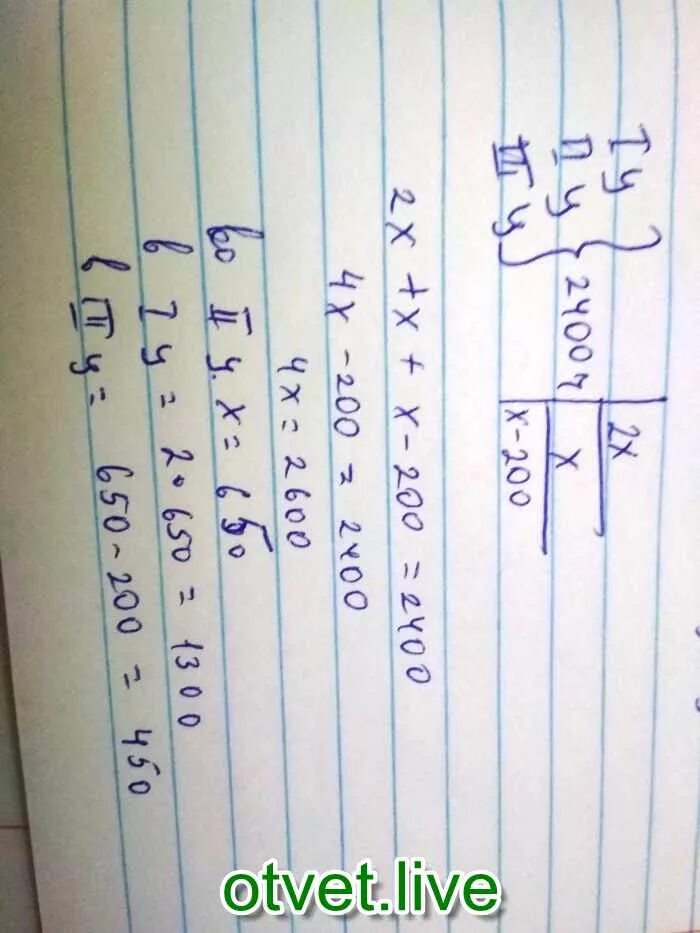 I ц 2x
II ц } 2400 ч x
III ц x-200
2x + x + x - 200 = 2400
4x - 200 = 2400
4x = 2600
во II ц. x = 650
в I ц = 2 • 650 = 1300
в III ц = 650 - 200 = 450
otvet.live